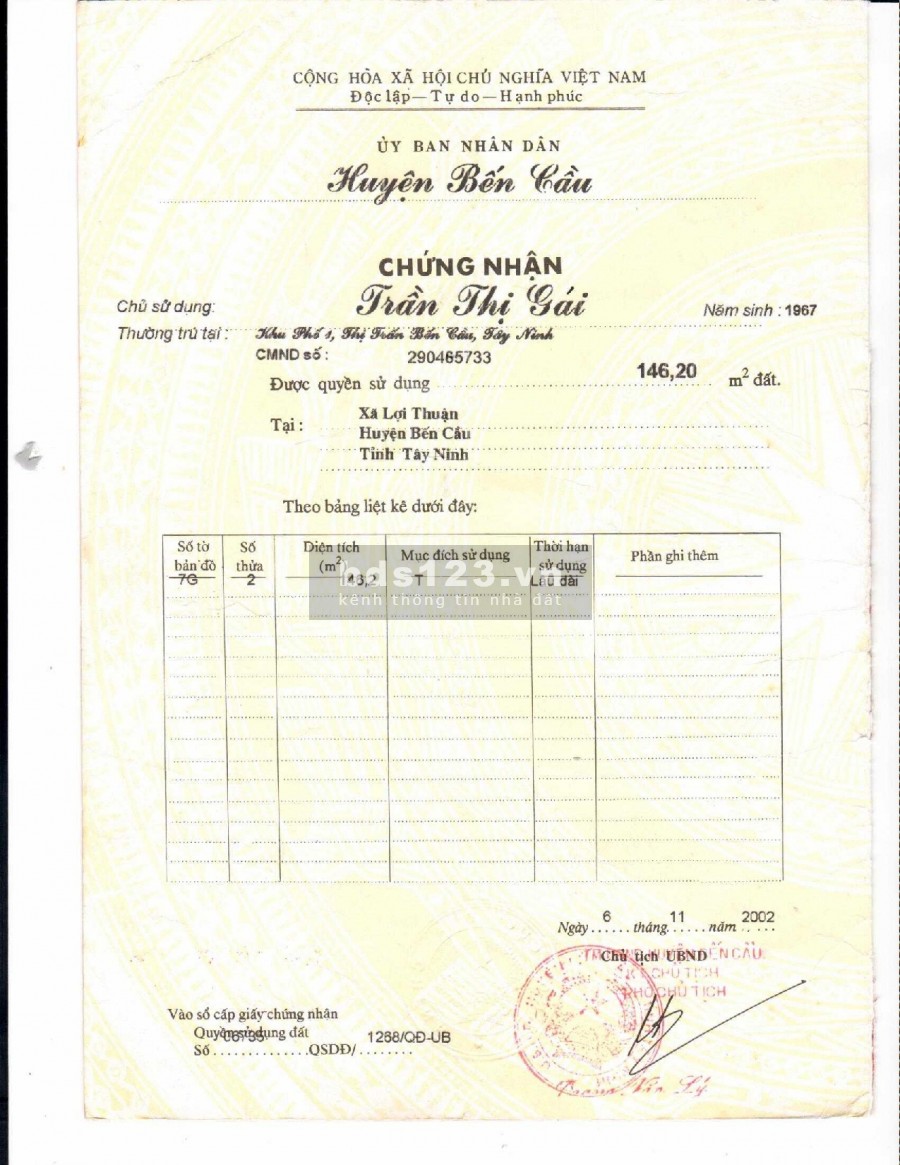 CỘNG HÒA XÃ HỘI CHỦ NGHĨA VIỆT NAM
Độc lập — Tự do — Hạnh phúc
ỦY BAN NHÂN DÂN
Huyện Bến Cầu
CHỨNG NHẬN
Chủ sử dụng: Trần Thị Gái Năm sinh : 1967
Thường trú tại : Khu Phố 1, Thị Trấn Bến Cầu, Tây Ninh
CMND số : 290465733
Được quyền sử dụng 146,20 m² đất.
Tại : Xã Lợi Thuận
Huyện Bến Cầu
Tỉnh Tây Ninh
Theo bảng liệt kê dưới đây:
Số tờ bản đồ Số thửa Diện tích (m²) Mục đích sử dụng Thời hạn sử dụng Phần ghi thêm
7G 2 146,2 T Lâu dài
bds123.vn
kênh thông tin nhà đất
Ngày 6 tháng 11 năm 2002
Chủ tịch UBND
TM. UBND HUYỆN BẾN CẦU
KT CHỦ TỊCH
PHÓ CHỦ TỊCH
Vào sổ cấp giấy chứng nhận
Quyền sử dụng đất
Số QSDĐ/ 1268/QĐ-UB